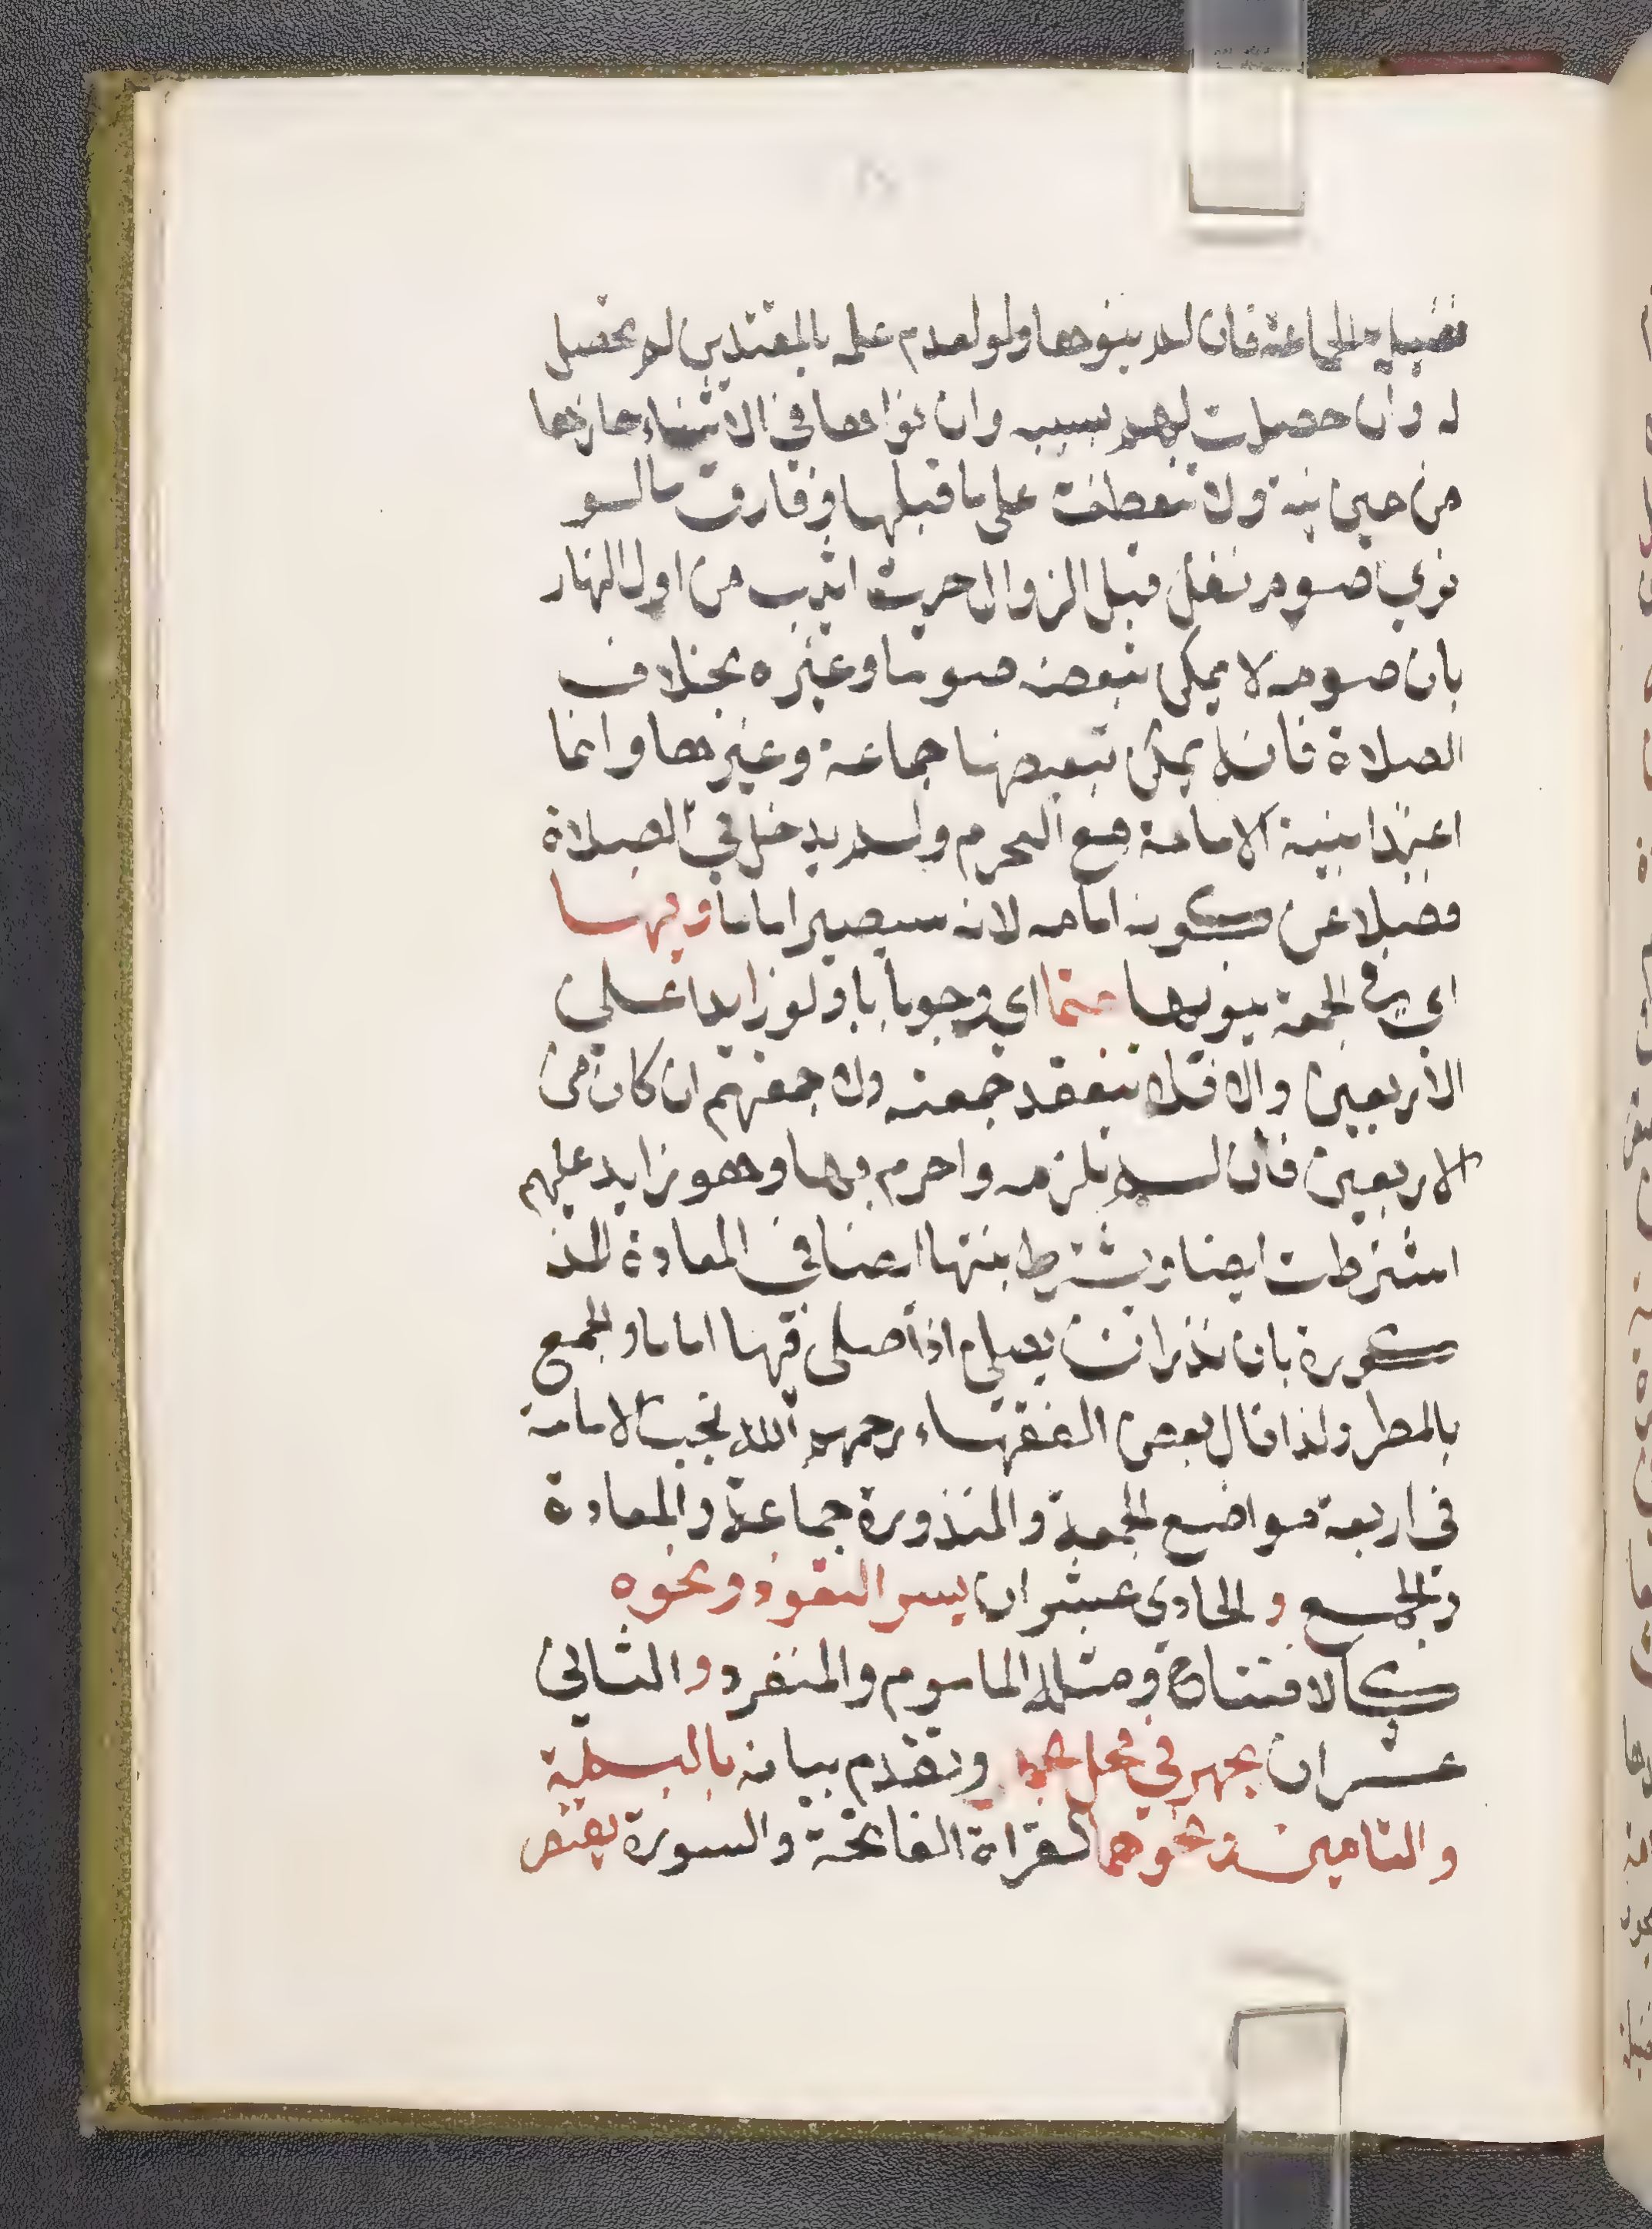 فضيلة الجماعة فان لم ينوها ولو لعدم علمه بالمقتدين لم تحصل
له وان حصلت لهم بسببه وان نواها في الاثناء حازها
من حين نيته ولا تنعطف على ما قبلها وفارقت ما لو
نوى صوم نفل قبل الزوال حيث اثيب من اول النهار
بان صومه لا يمكن تبعضه صوما وغيره بخلاف
الصلاة فانه يمكن تبعيضها جماعة وغيرها وانما
اعتد بنية الامامة مع التحرم ولم يدخل في الصلاة
فضلا عن كونه امامه لانه سيصير اماما وفيها
اي في الجمعة ينويها حتما اي وجوبا ولو زايدا على
الأربعين والا فلا تنعقد جمعته ولا جمعتهم ان كان من
الاربعين فان لم تلزمه واحرم بها وهو زايد عليهم
اشترطت ايضا ويشترط نيتها ايضا في المعادة المذ
كورة بان نذر ان يصلي اذا صلى فيها اماما والجمع
بالمطر ولذا قال بعض الفقهاء رحمهم الله تجب الامامة
في اربعة مواضع الجمعة والمنذورة جماعة والمعادة
والجمع والحادي عشر ان يسر التعوذ ونحوه
كالافتتاح ومثله الماموم والمنفرد والثاني
عشر ان يجهر في محل الجهر وتقدم بيانه بالبسملة
والتامين ونحوهما كقراة الفاتحة والسورة